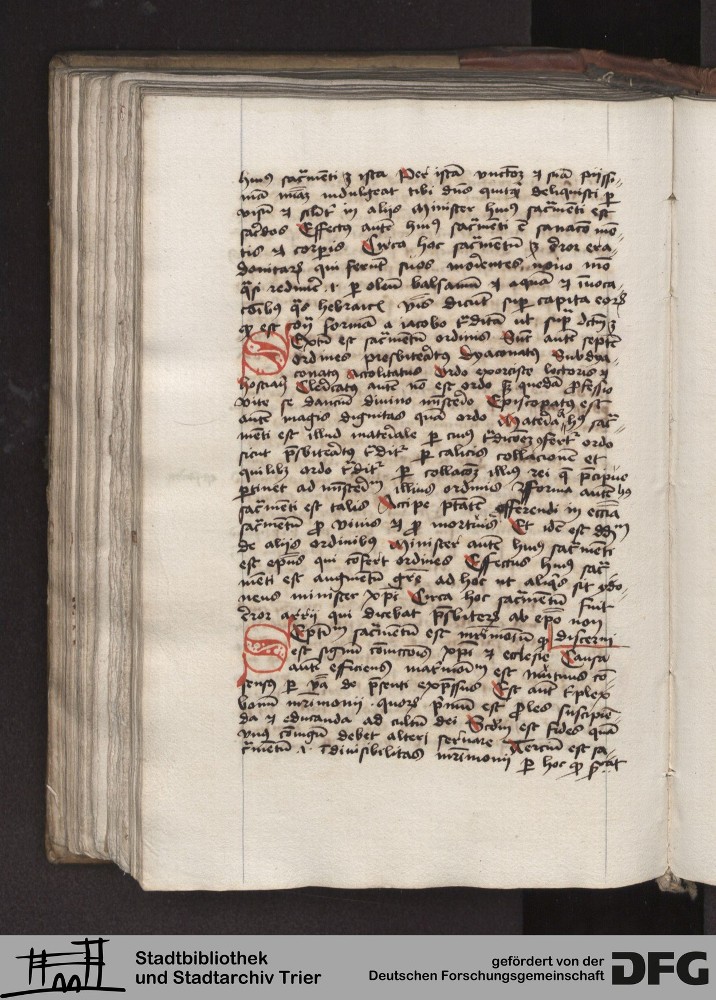 huius sacramenti est ista Per istam unctionem et suam piissi-
mam misericordiam indulgeat tibi dominus quitquid deliquisti per
visum et similiter in aliis Minister huius sacramenti est
sacerdos Effectus autem huius sacramenti est sanatio men-
tis et corporis Circa hoc sacramentum est error era-
donitarum qui ferunt suos morientes novo modo
quasi redimere per oleum balsamum et aquam et invoca-
tionibus quas hebraice dicunt super capita eorum
quod est contra formam a iacobo traditam ut supra dictum est
Sextum est sacramentum ordinis Sunt autem septem
ordines presbiteratus dyaconatus Subdya-
conatus Accolitatus Ordo exorciste lectoris et
hostiarii Clericatus autem non est ordo sed quedam professio
vite se dancium divino ministerio Episcopatus est
autem magis dignitas quam ordo Materia huius sacra-
menti est illud materiale per cuius traditionem confertur ordo
sicut presbiteratus traditur per calicis collacionem et
quilibet ordo traditur per collacionem illius rei que precipue
pertinet ad ministerium illius ordinis Forma autem huius
sacramenti est talis Accipe potestatem offerendi in ecclesia
sacramentum pro vivis et pro mortuis Et idem est dicendum
de aliis ordinibus Minister autem huius sacramenti
est episcopus qui confert ordines Effectus huius sacra-
menti est augmentum gratie ad hoc ut aliquis sit ydo-
neus minister Christi Circa hoc sacramentum fuit
error arrii qui dicebat presbiterum ab episcopo non
discerni
Septimum sacramentum est matrimonium quod
est signum coniunctionis Christi et ecclesie Causa
autem efficiens matrimonium est mutuus con-
sensus per verba de presenti expressus Est autem triplex
bonum matrimonii quorum primum est proles suscipien-
da et educanda ad cultum dei Secundum est fides quam
unus coniugum debet alteri servare Tercium est sa-
cramentum id est indivisibilitas matrimonii per hoc quod significat
Stadtbibliothek
und Stadtarchiv Trier
gefördert von der
Deutschen Forschungsgemeinschaft
DFG